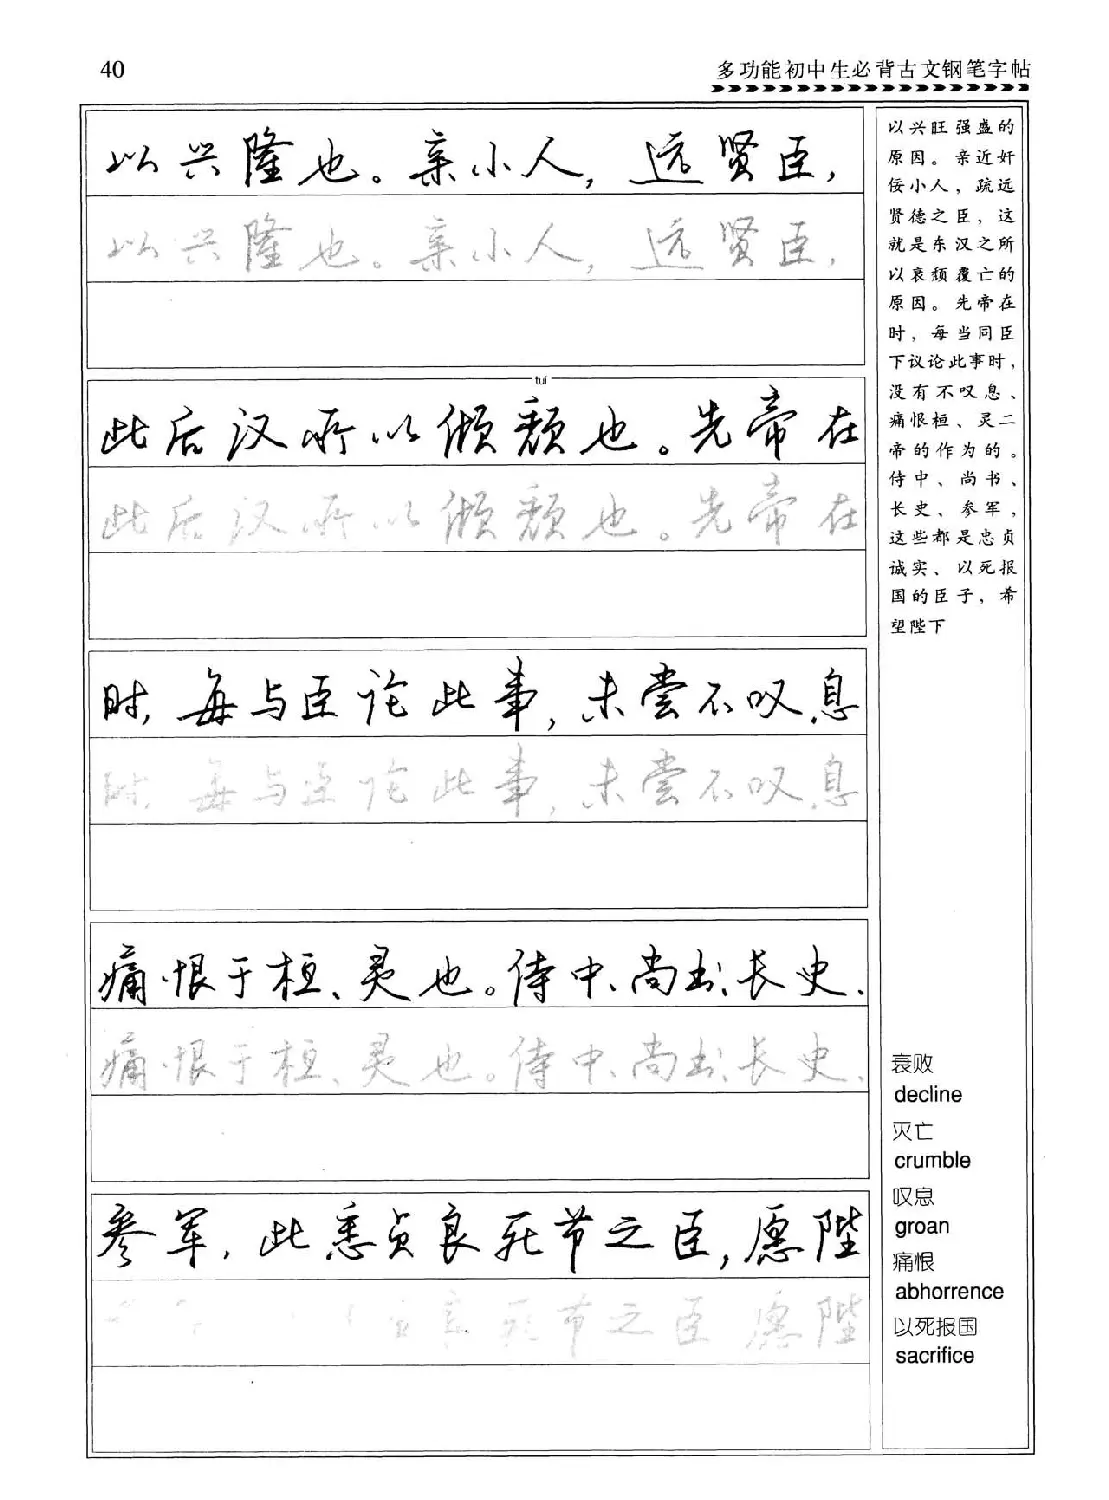 40
多功能初中生必背古文钢笔字帖
以兴隆也。亲小人，远贤臣，
以兴隆也。亲小人，远贤臣，
tuí
此后汉所以倾颓也。先帝在
此后汉所以倾颓也。先帝在
时，每与臣论此事，未尝不叹息
时，每与臣论此事，未尝不叹息
痛恨于桓、灵也。侍中、尚书、长史、
痛恨于桓、灵也。侍中、尚书、长史、
参军，此悉贞良死节之臣，愿陛
良死节之臣 愿陛
以兴旺强盛的
原因。亲近奸
佞小人，疏远
贤德之臣，这
就是东汉之所
以衰颓覆亡的
原因。先帝在
时，每当同臣
下议论此事时，
没有不叹息、
痛恨桓、灵二
帝的作为的。
侍中、尚书、
长史、参军，
这些都是忠贞
诚实、以死报
国的臣子，希
望陛下
衰败
decline
灭亡
crumble
叹息
groan
痛恨
abhorrence
以死报国
sacrifice